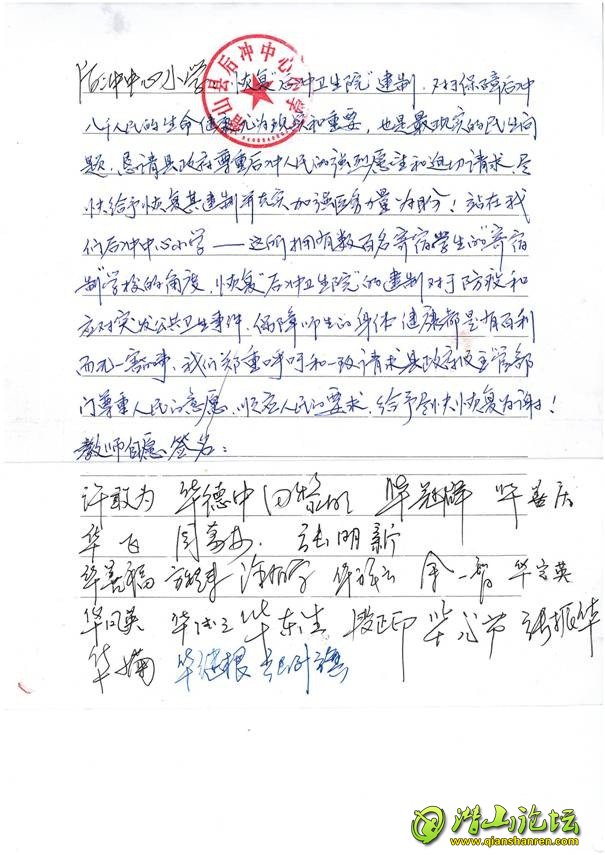 后冲中心小学：恢复“后冲卫生院”建制，对于保障后冲
八千人民的生命健康尤为现实和重要，也是最现实的民生问
题，恳请县政府尊重后冲人民的强烈愿望和迫切请求，尽
快给予恢复其建制并充实加强医务力量为盼！站在我
们后冲中心小学——这所拥有数百名寄宿学生的“寄宿
制”学校的角度，恢复“后冲卫生院”的建制对于防疫和
应对突发公共卫生事件，保障师生的身体健康都是有百利
而无一害的事，我们郑重呼吁和一致请求县政府及主管部
门尊重人民的意愿，顺应人民的要求，给予尽快恢复为谢！
教师自愿签名：
许敢为 华德中 华冠群 华善庆
华飞 张明新
华善福 余一智 华家英
华风英 华东生 段正印 张振华
华继根
山县后冲中心小学
潜山论坛
www.qianshanren.com